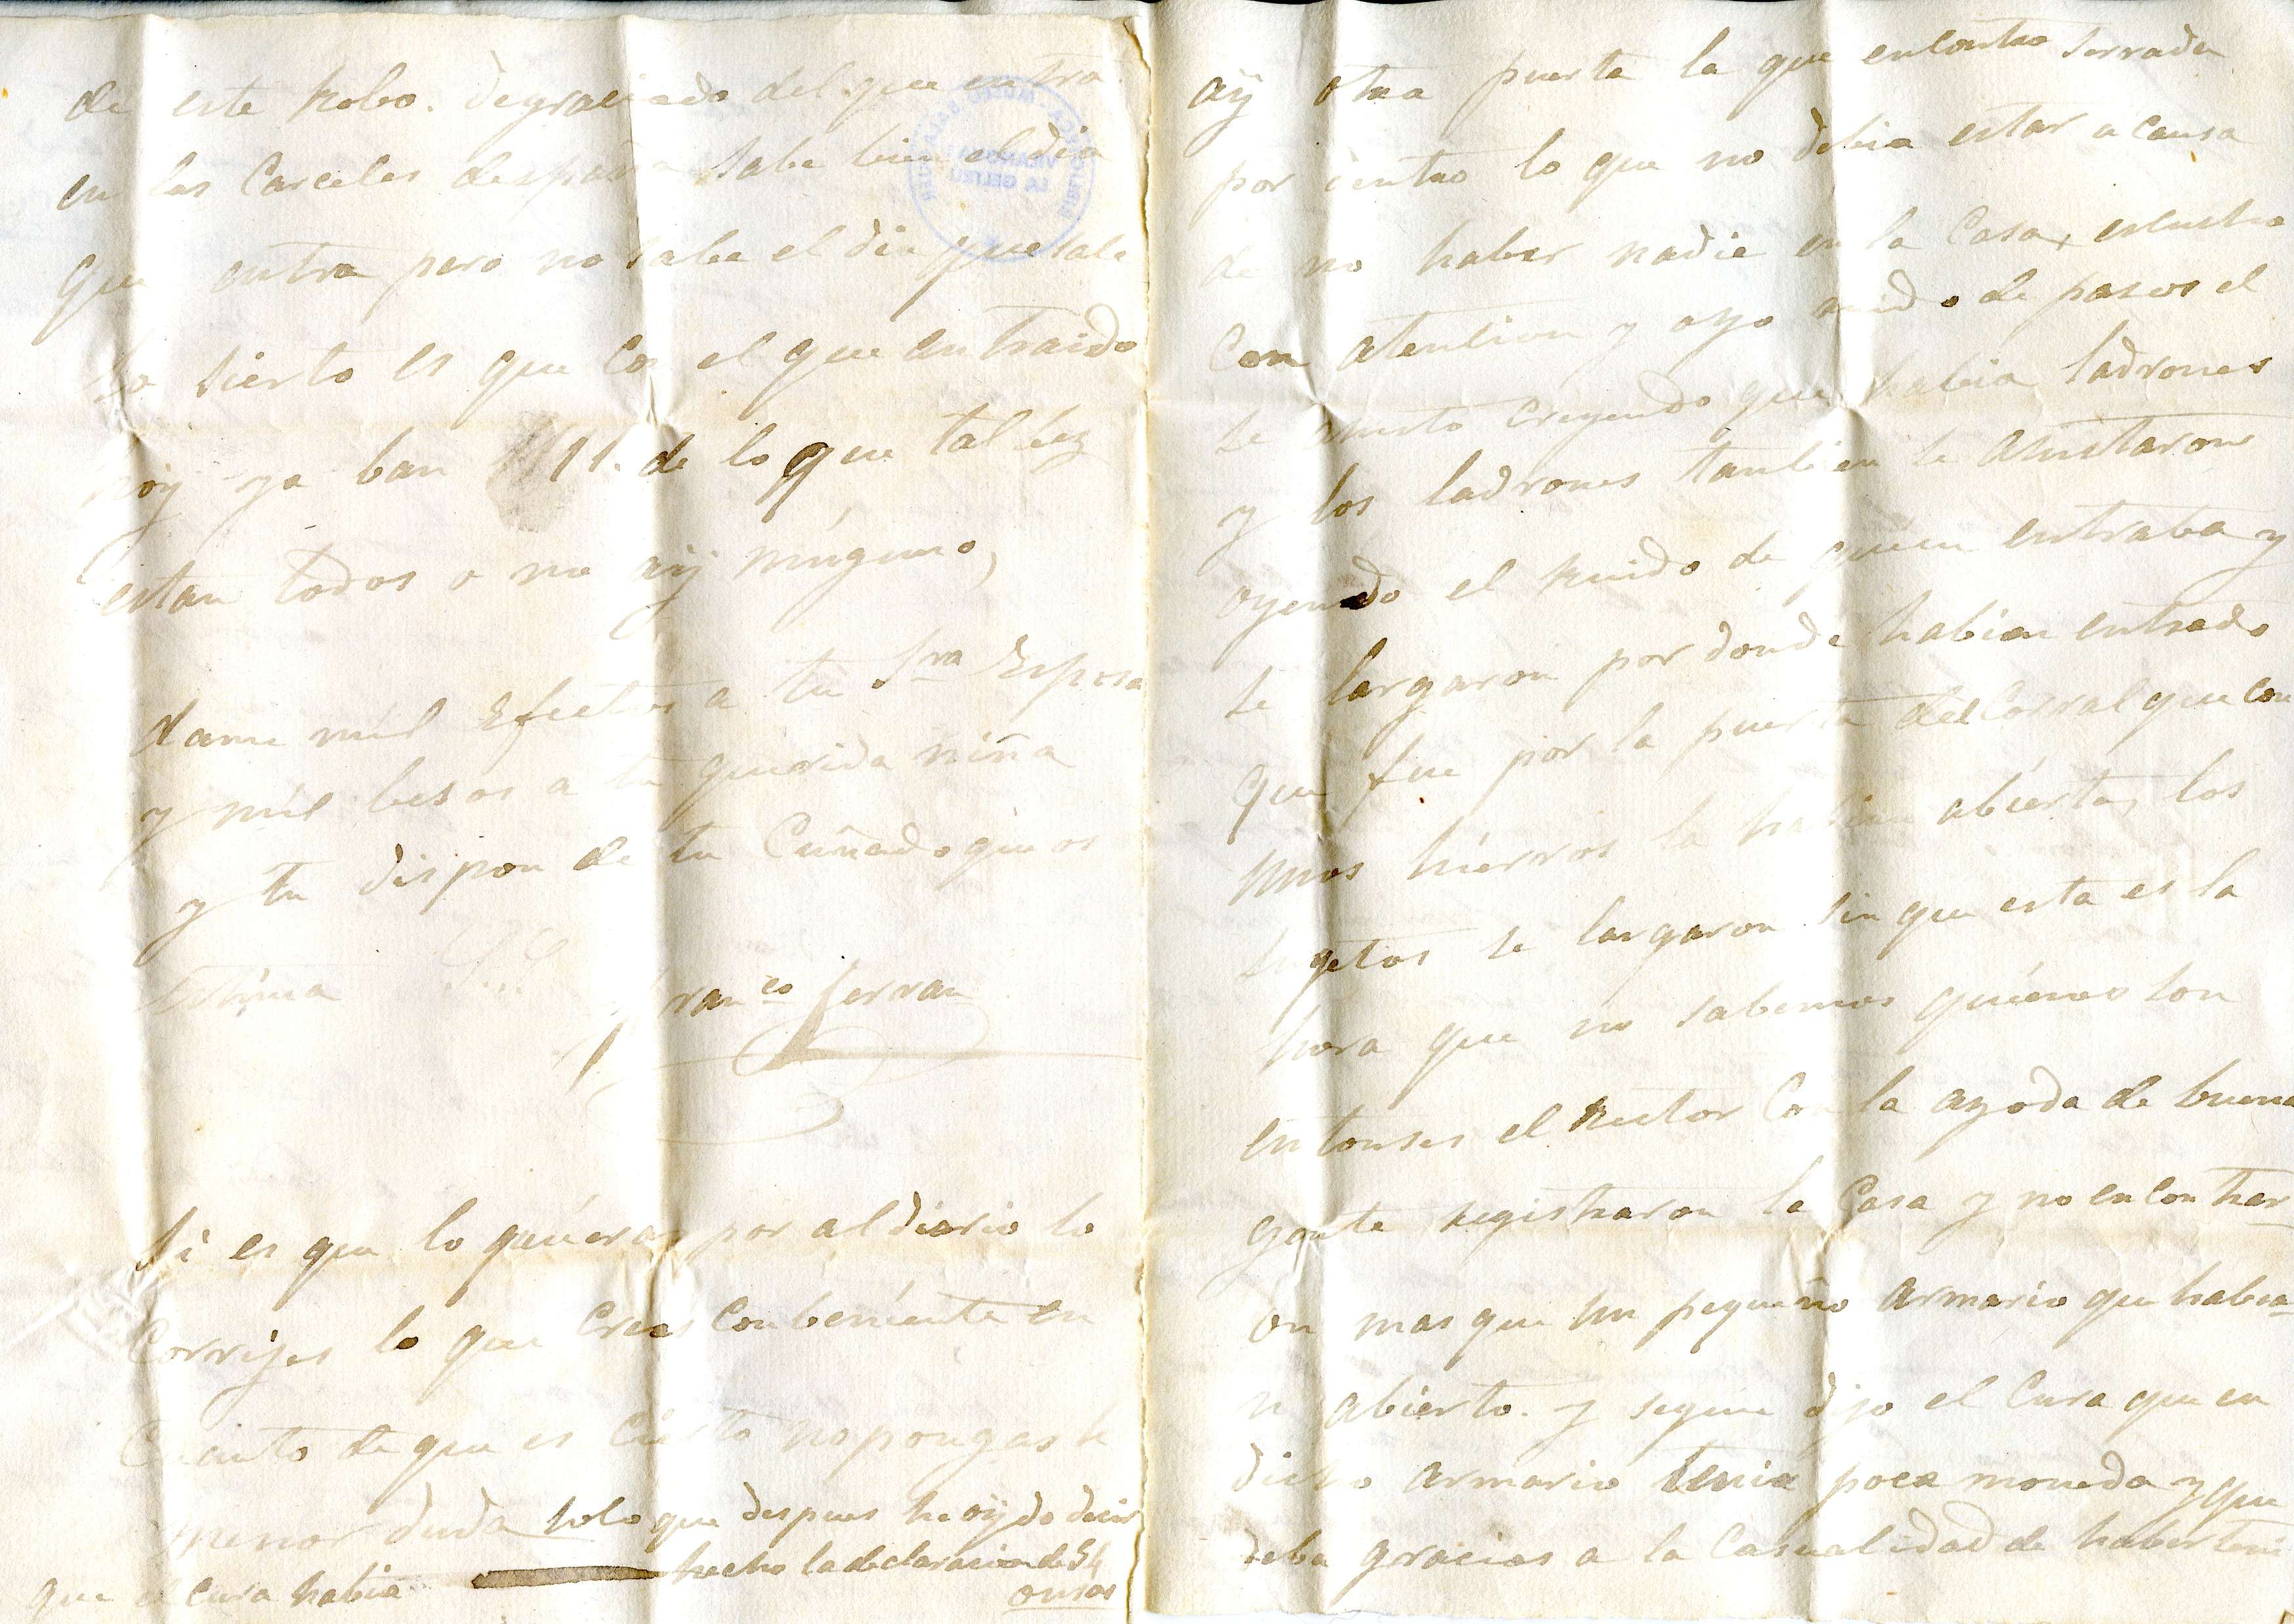 de este Robo. degraciado del que entra
en las Carceles despaña sabe bien el dia
que entra pero no sabe el dia que sale
lo sierto es que con el que an traido
oy ya ban 11. de lo que tal bez
estan todos o no aÿ ninguno,
dame mil Efectos a tu Sra Esposa
y mil besos a tu querida niña
y tu dispon de tu Cuñado que os
Estima
Franco Ferran
Si es que lo quieras por al diario lo
Corrijes lo que Creas Conbeniente en
Cuanto de que es Cierto no pongas la
menor duda solo que despues he oydo decir
que el Cura habia hecho la declaracion de 54
onsas
aÿ otra puerta la que encontro serrada
por dentro lo que no debia estar a causa
de no haber nadie en la Casa, escucha
Con atencion y oyo ruido de pasos el
se asusto creyendo que habia ladrones
y los ladrones tambien se asustaron
oyendo el Ruido de quien entraba y
se largaron por donde habian entrado
que fue por la puerta del Corral que con
unos hierros la habian abierta, los
sugetos se largaron sin que esta es la
hora que no sabemos quienes son
entonses el Rector Con la ayoda de buena
gente registraron la Casa y no encontrar
on mas que un pequeño armario que habia
n abierto. y segun dijo el Cura que en
dicho armario tenia poca moneda y que
deba gracias a la Casualidad de haber teni